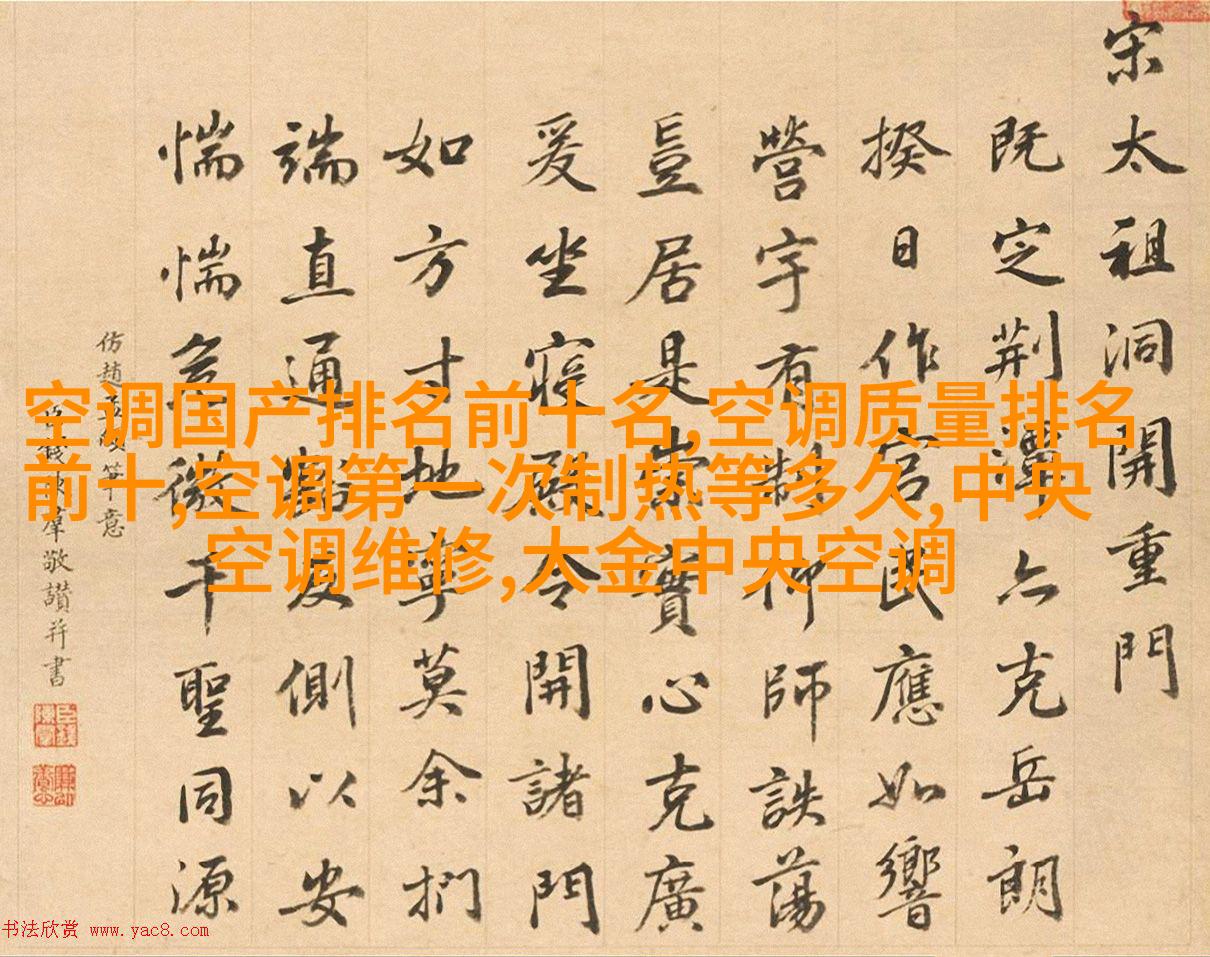 宋太祖洞開重門
既定荆潭亦克岳朗
揆日作宫民應如響
營宇有制仰師詄蕩
豈居是崇實心克廣
爰坐寢殿令開諸門
如方寸地寧莫余捫
端直通豁反側以安
惴惴危微千聖同源
仿趙孟頫筆意
臣錢陳羣敬讃并書
空调国产排名前十名,空调质量排名
前十,空调第一次制热等多久,中央
空调维修,大金中央空调
书法欣赏 www.yac8.com